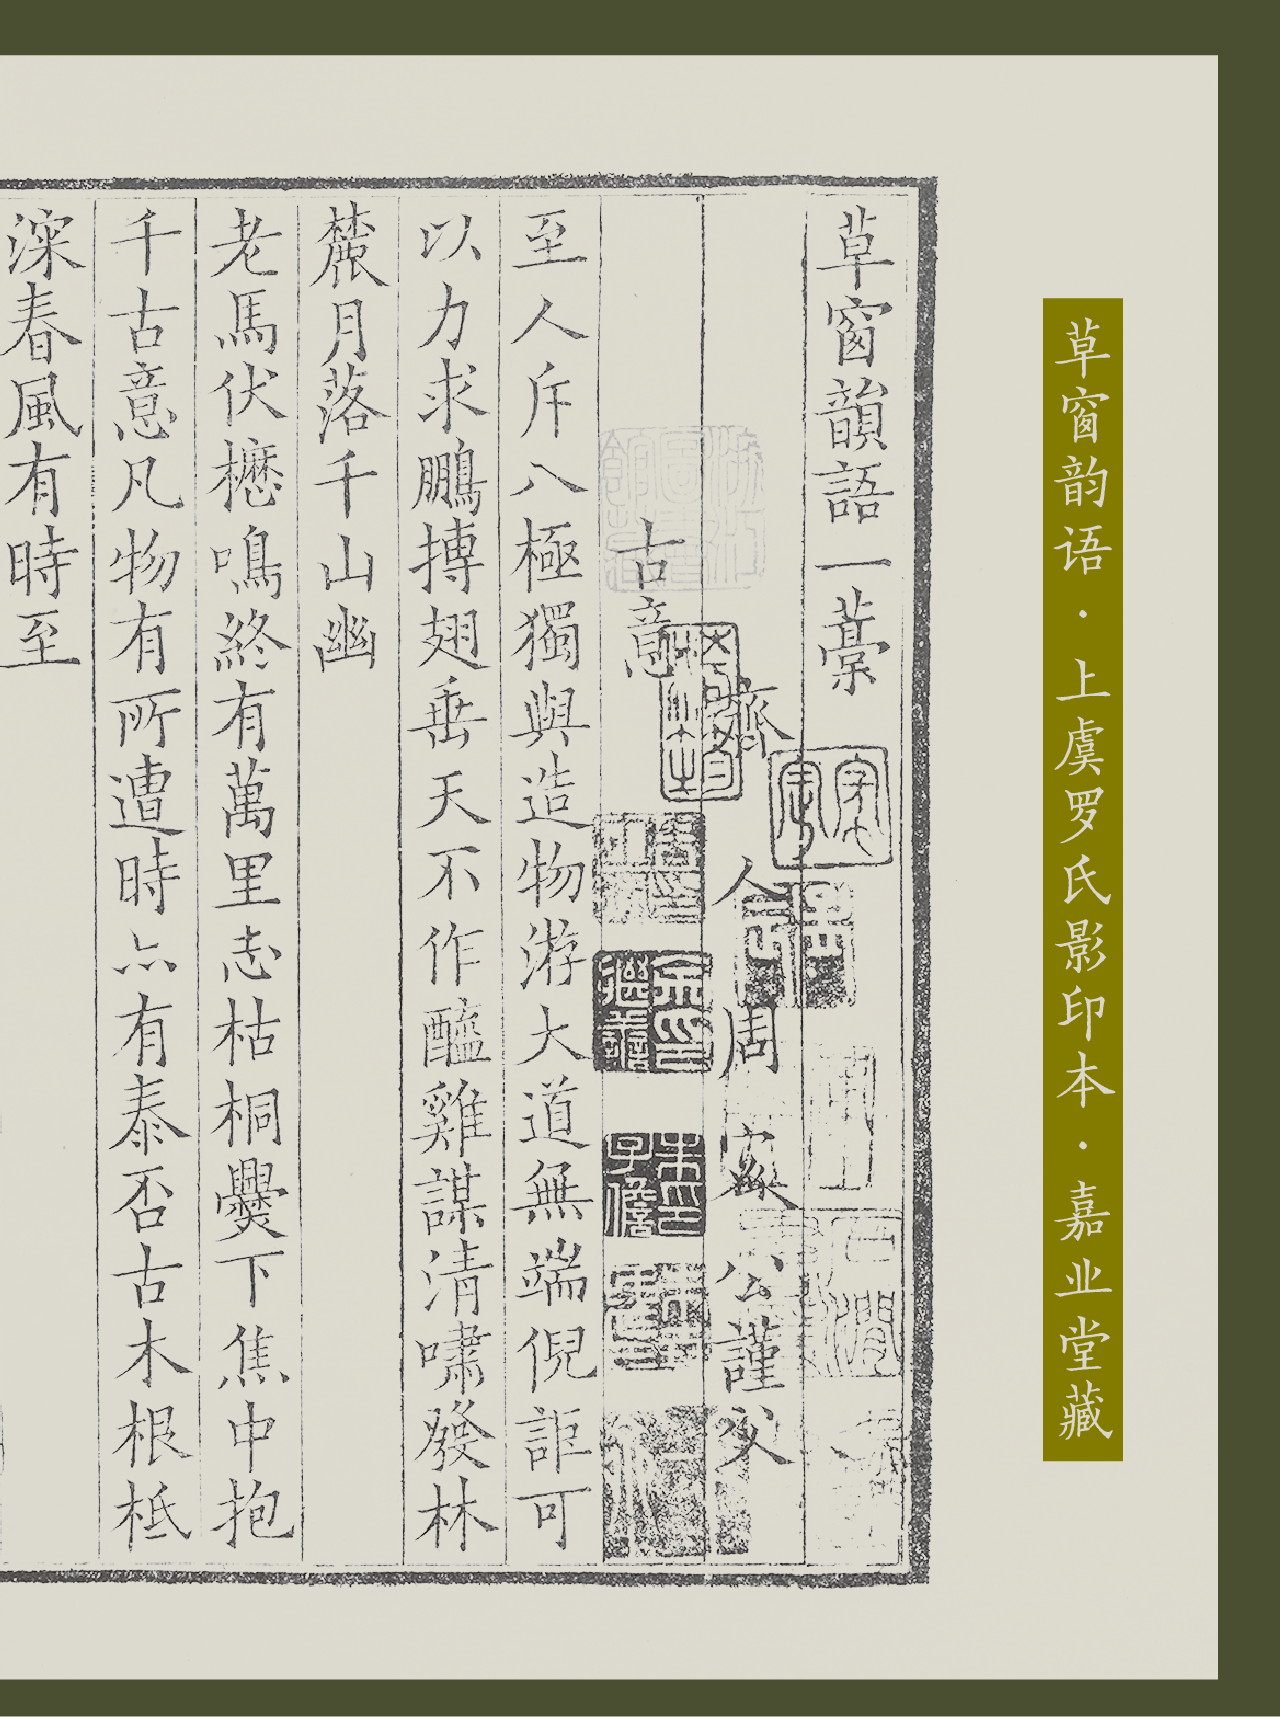 草窗韵语·上虞罗氏影印本·嘉业堂藏
草窗韻語一藁
齊人周密公謹父
古意
至人斥八極獨與造物游大道無端倪詎可
以力求鵬摶翅垂天不作醯雞謀清嘯發林
麓月落千山幽
老馬伏櫪鳴終有萬里志枯桐爨下焦中抱
千古意凡物有所遭時亦有泰否古木根柢
深春風有時至